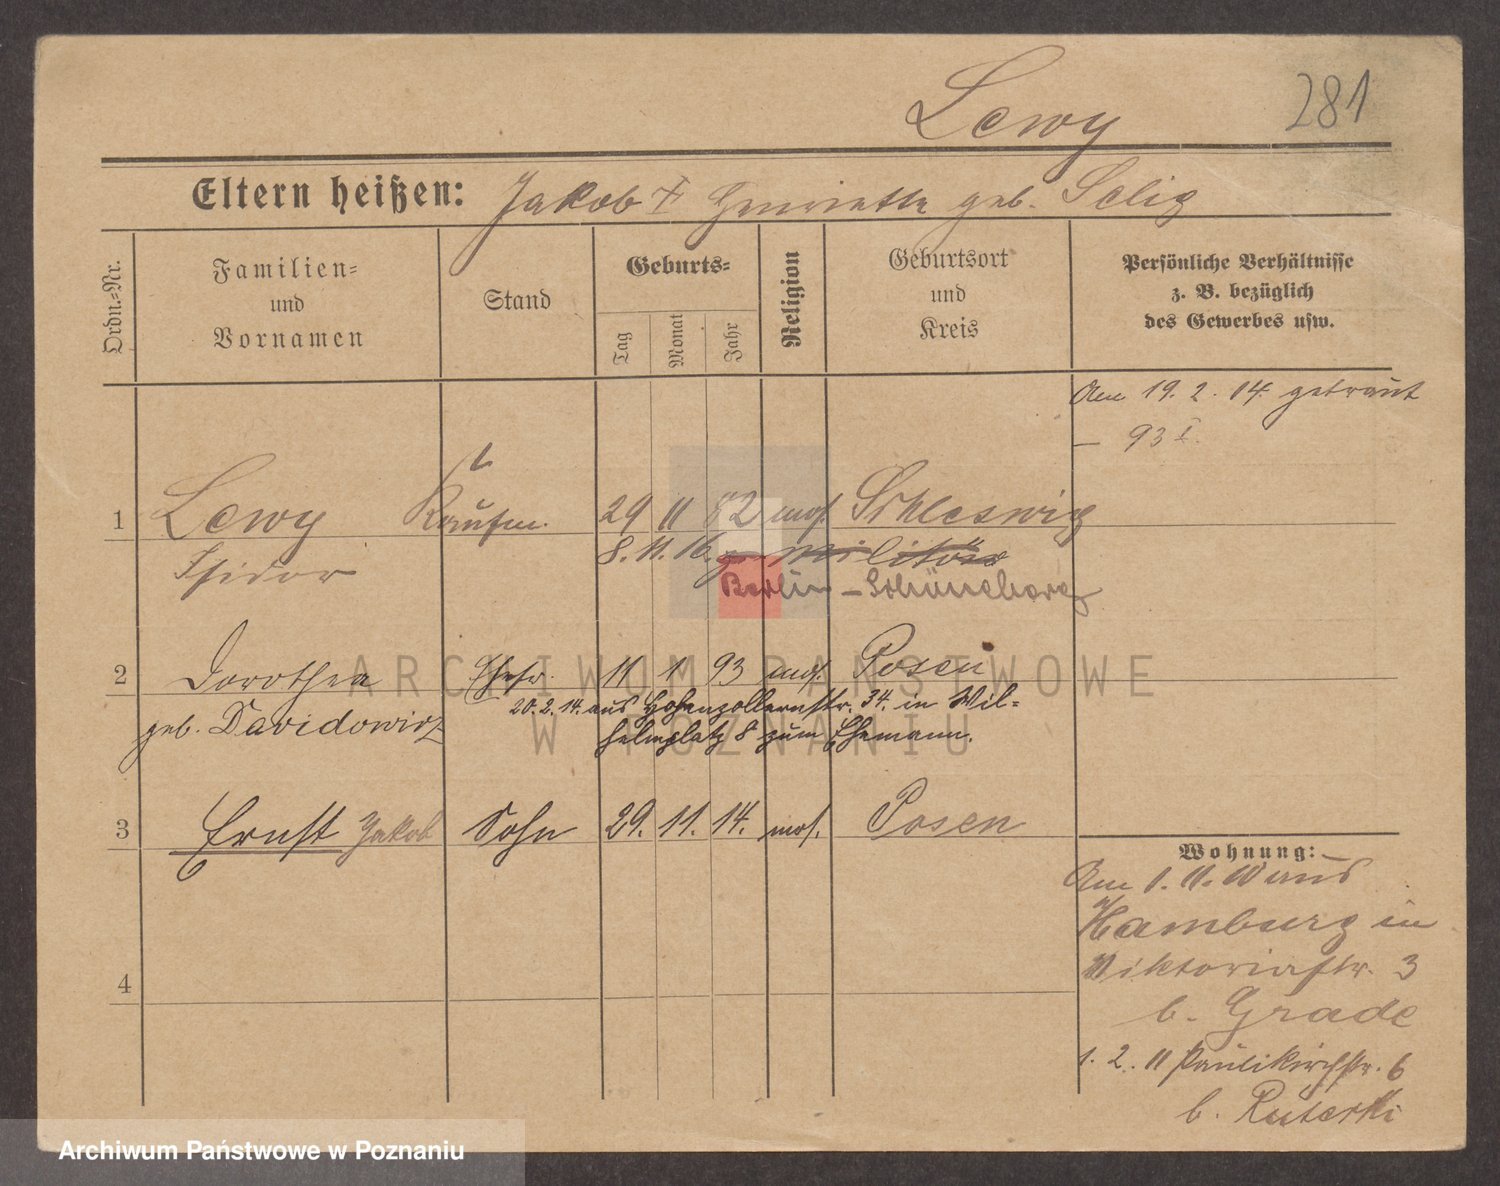 Lewy
281
Eltern heißen: Jakob † Henriette geb. Selig
Ordn.-Nr.
Familien-
und
Vornamen
Stand
Geburts-
Tag
Monat
Jahr
Religion
Geburtsort
und
Kreis
Persönliche Verhältnisse
z. B. bezüglich
des Gewerbes usw.
Am 19. 2. 14. getraut
— 93 I.
1 Lewy Kaufm. 29 11 82 mos. Schleswig
Isidor 8. 11. 16. z. Militär
Berlin - Schöneberg
2 Dorothea Ehefr. 11 1 93 mos. Posen
geb. Davidowicz
20. 2. 14. aus Hohenzollernstr. 34. in Wil-
helmplatz 8 zum Ehemann.
3 Ernst Jakob Sohn 29. 11. 14. mos. Posen
4
Wohnung:
Am 1. 11. 10 aus
Hamburg in
Viktoriastr. 3
b. Grade
1. 2. 11 Paulikirchstr. 6
b.
ARCHIWUM PAŃSTWOWE
W POZNANIU
Archiwum Państwowe w Poznaniu